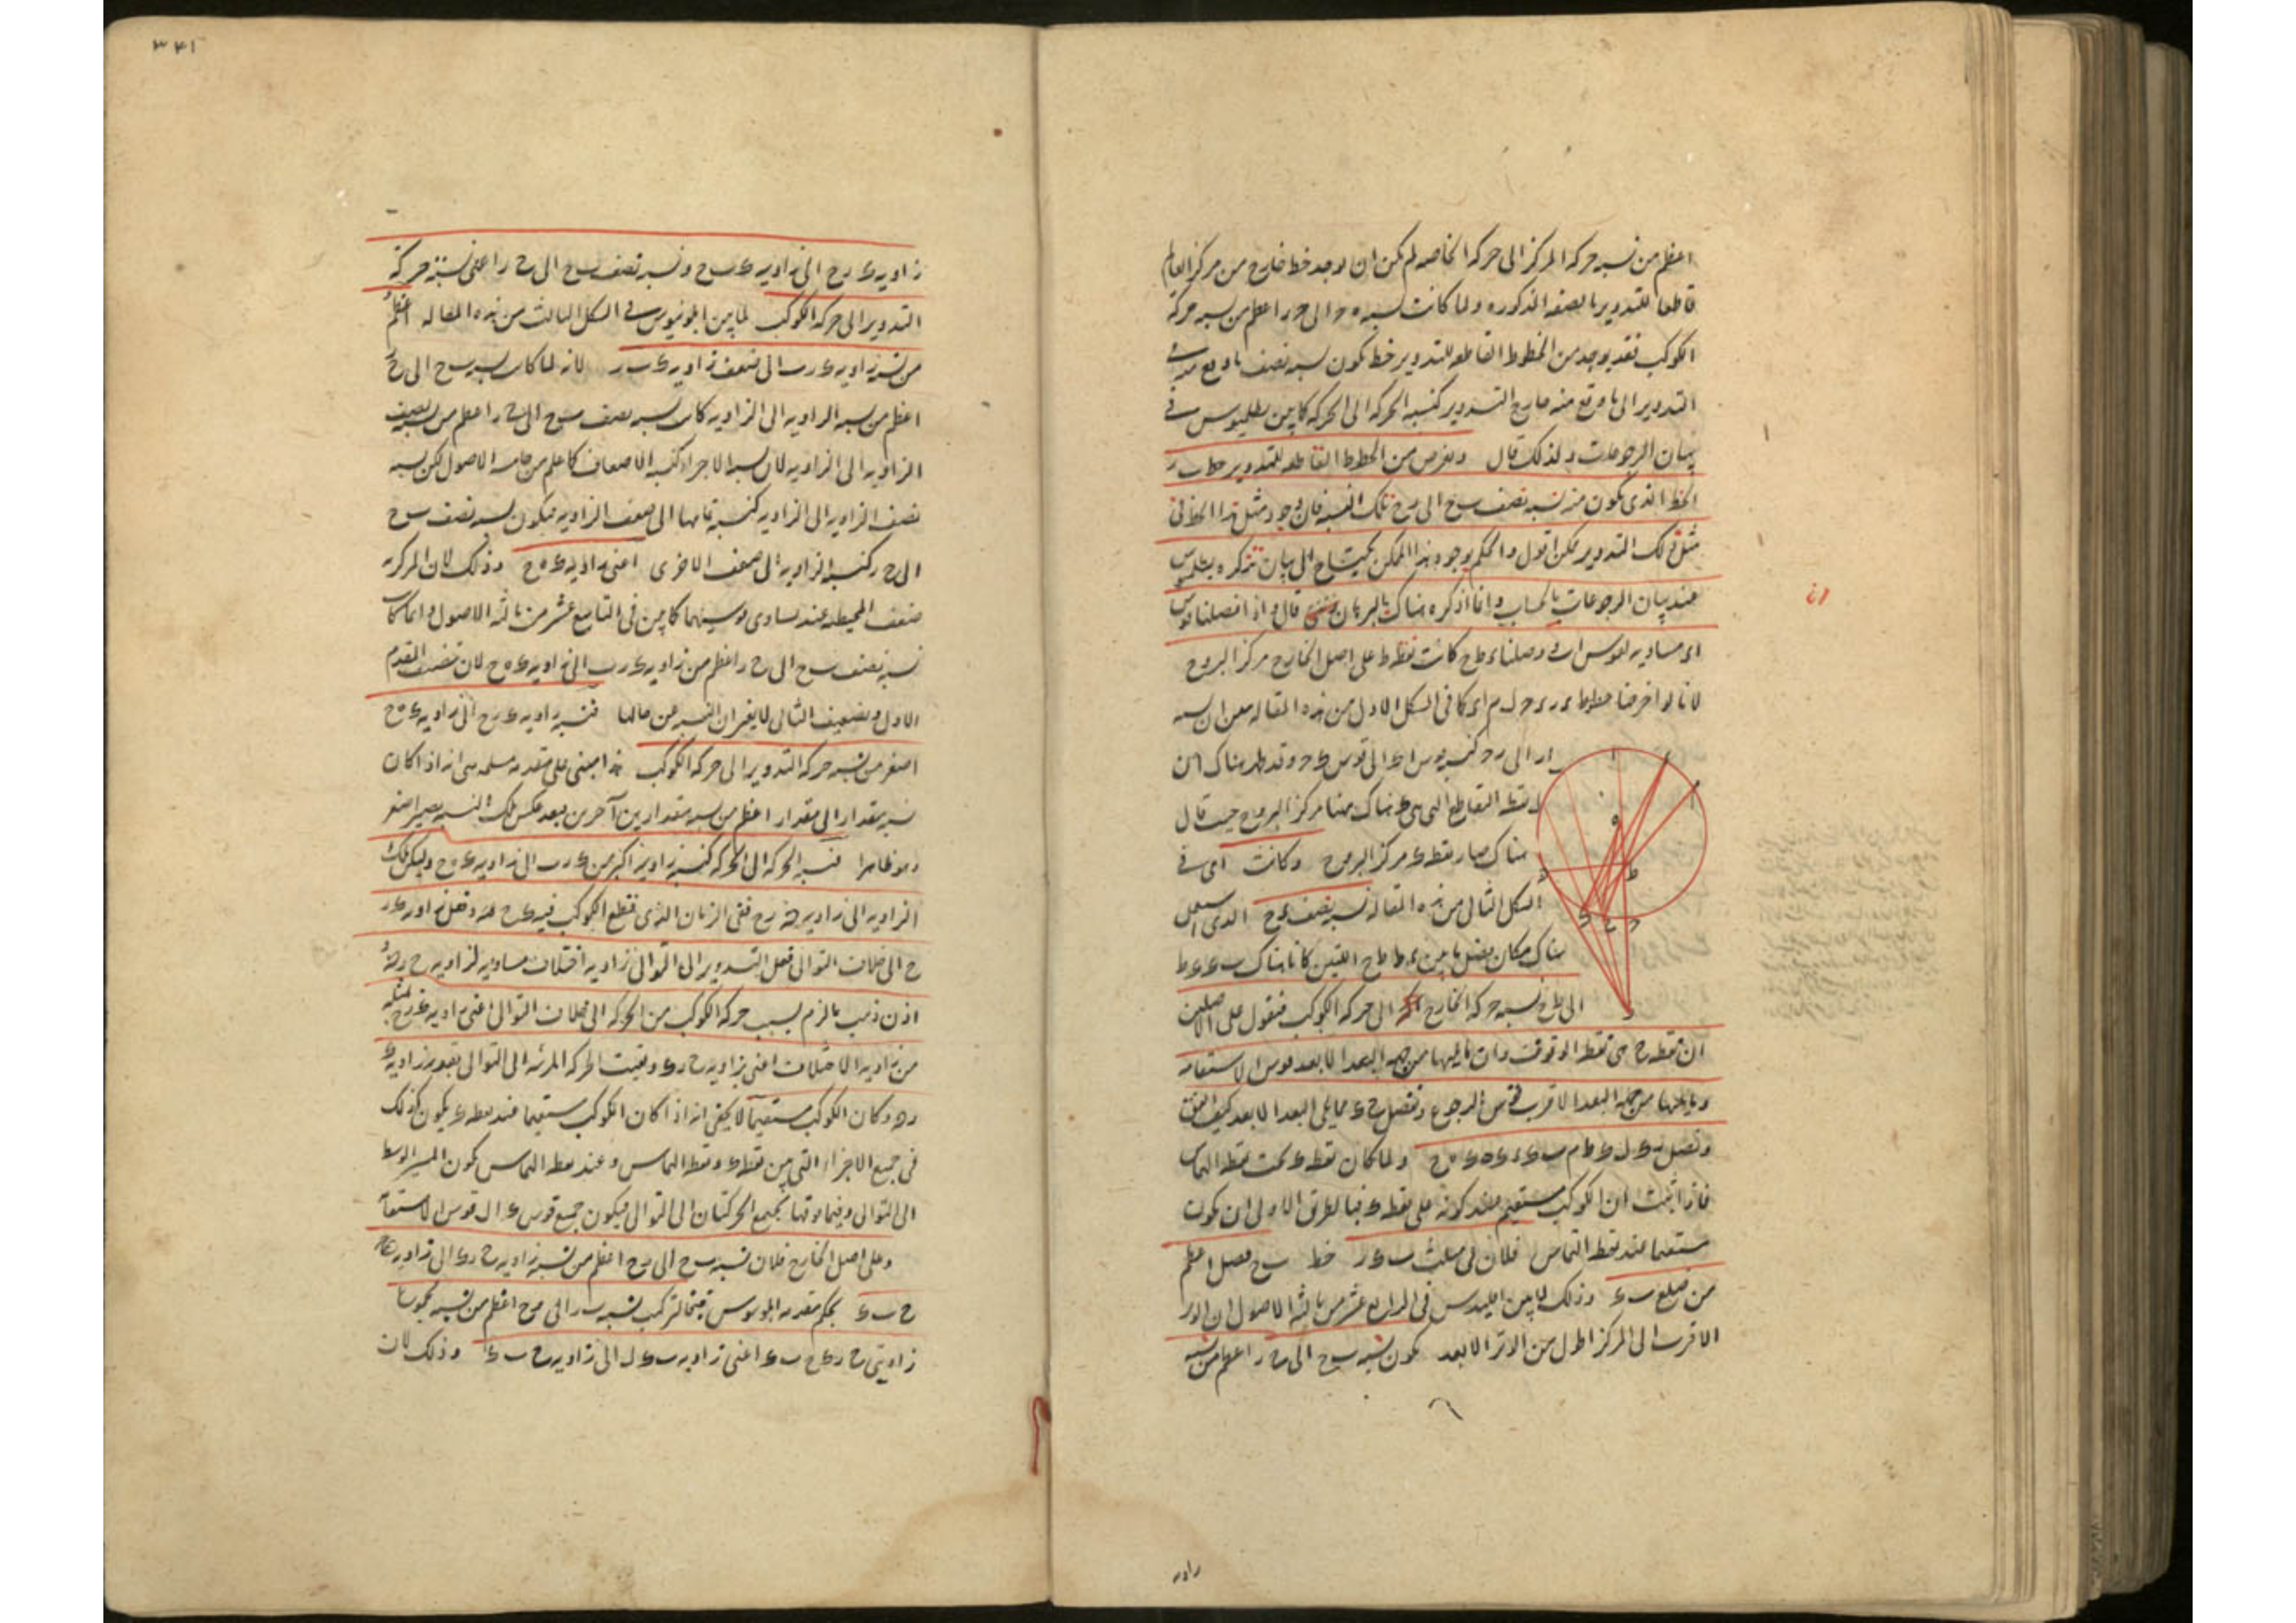 اعظم من نسبة حركة المركز الى حركة الخاصه لم يكن ان يوجد خط خارج من مركز العالم
قاطعا للتدوير بالصفه المذكوره ولما كانت نسبة ه ح الى ح ر اعظم من نسبة حركة
الكوكب فقد يوجد من الخطوط القاطعه للتدوير خط يكون نسبة نصف ما وقع منه فى
التدوير الى ما وقع منه خارج التدوير كنسبة الحركه الى الحركه كما بين بطلميوس فى
بيان الرجوعات ولذلك قال ونفرض من الخطوط القاطعه للتدوير خط ب ر
الخط الذى يكون منه نسبة نصف ب ح الى ر ح تلك النسبه فان وجود مثل هذا الخط فى
مثل ذلك التدوير ممكن اقول والحكم بوجود هذا الممكن يحتاج الى بيان تذكره بطلميوس
عند بيان الرجوعات بالحساب وانا اذكره هناك بالبرهان قال واذا فصلنا قوس
اى مساويه لقوس ا ب ووصلنا ء ط ح كانت نقطة ط على اصل الخارج مركز البروج
لانا لو اخرجنا خطوط كما فى الشكل الاول من هذه المقاله معن ان نسبة
ار الى ر ح كنسبة قوس ا ء الى قوس ء ح وقد ظهر هناك ان
نقطة التقاطع التى هى هناك ههنا مركز البروج حيث قال
هناك صار نقطة ء مركز البروج وكانت اى فى
الشكل الثانى من هذه المقاله نسبة نصف ء ح الذى
هناك مكان فضل ما بين ء ط ط ح
الى ط ح نسبة حركة الخارج الى حركة الكوكب فنقول على الاصلين
ان نقطة ح هى نقطة الوقوف وان ما يليها من جهة البعد الابعد قوس الاستقامه
وما يليها من جهة البعد الاقرب قوس الرجوع ونفصل ح ء مما يلى البعد الابعد كيف اتفق
ونصل ر ء ل ء ط م ب ء ء ه ه ح ولما كان نقطة ء تحت نقطة التماس
فاذا اثبت ان الكوكب مستقيم عند كونه على نقطة ء فبالطريق الاولى ان يكون
مستقيما عند نقطة التماس فلان فى مثلث ب ء ر خط ب ح فصل اعظم
من ضلع ب ء وذلك لما بين اقليدس فى الرابع عشر من ثالثة الاصول ان الوتر
الاقرب الى المركز اطول من الوتر الابعد يكون نسبة ب ح الى ح ر اعظم من نسبة
زاويه
٣٤١
زاوية ء ر ح الى زاوية ء ب ح ونسبة نصف ب ح الى ح ر اعنى نسبة حركة
التدوير الى حركة الكوكب لما بين ابلونيوس فى الشكل الثالث من هذه المقاله اعظم
من نسبة زاوية ء ر ب الى ضعف زاوية ء ب ر لانه لما كان نسبة ب ح الى ح ر
اعظم من نسبة الزاويه الى الزاويه كان نسبة نصف ب ح الى ح ر اعظم من نسبة نصف
الزاويه الى الزاويه لان نسبة الاجزاء كنسبة الاضعاف كما علم من خامسة الاصول لكن نسبة
نصف الزاويه الى الزاويه كنسبة تمامها الى ضعف الزاويه فيكون نسبة نصف ب ح
الى ح ر كنسبة الزاويه الى ضعف الاخرى اعنى زاوية ء ه ح وذلك لان المركزيه
ضعف المحيطيه عند تساوى قوسيهما كما بين فى التاسع عشر من ثالثة الاصول وانما كان
نسبة نصف ب ح الى ح ر اعظم من زاوية ء ر ب الى زاوية ء ه ح لان تنصيف المقدم
الاول وتضعيف التالى لا يغيران النسبة عن حالها فنسبة زاوية ء ر ح الى زاوية ء ه ح
اصغر من نسبة حركة التدوير الى حركة الكوكب هذا مبنى على مقدمه مسلمه هى انه اذا كان
نسبة مقدار الى مقدار اعظم من نسبة مقدارين آخرين بعد عكس تلك النسبه يصير اصغر
وهو ظاهر فنسبة الحركه الى الحركه كنسبة زاويه اكبر من ء ر ب الى زاوية ء ه ح وليكن تلك
الزاويه الى زاوية ه ر ح ففى الزمان الذى قطع الكوكب فيه ء ح
ح الى خلاف التوالى فعل التدوير الى التوالى زاوية اختلاف مساويه لزاوية ح ر ه
اذن ذهب ما لزم بسبب حركة الكوكب من الحركه الى خلاف التوالى اعنى زاوية ء ر ح بمثله
من زاوية الاختلاف اعنى زاوية ح ر ء وبقيت الحركه المرئيه الى التوالى بقدر زاوية ء
ر ه وكان الكوكب مستقيما لا يخفى انه اذا كان الكوكب مستقيما عند نقطة ء يكون كذلك
فى جميع الاجزاء التى بين نقطة ء ونقطة التماس وعند نقطة التماس يكون المسير الوسط
الى التوالى وفيما فوقها يجتمع الحركتان الى التوالى فيكون جميع قوس ء ا ل قوس الاستقامه
وعلى اصل الخارج فلان نسبة ب ح الى ر ح اعظم من نسبة زاوية ح ر ء الى زاوية
ح ب ء بحكم مقدمة ابلونيوس فبالتركيب نسبة ب ر الى ر ح اعظم من نسبة مجموع
زاويتى ح ر ء ح ب ء اعنى زاوية ب ء ل الى زاوية ح ب ء وذلك لان